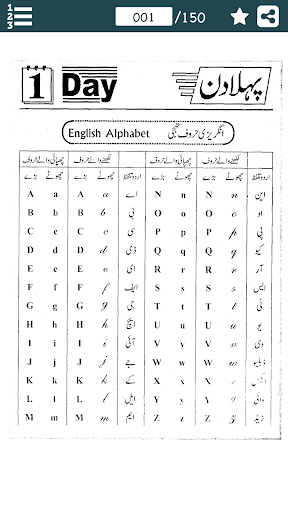 123
001 /150
1 Day پہلا دن
English Alphabet انگریزی حروف تہجی
چھپائی والے حروف لکھنے والے حروف چھپائی والے حروف لکھنے والے حروف
بڑے چھوٹے بڑے چھوٹے اردو تلفظ بڑے چھوٹے بڑے چھوٹے اردو تلفظ
A a A a اے N n N n این
B b B b بی O o O o او
C c C c سی P p P p پی
D d D d ڈی Q q Q q کیو
E e E e ای R r R r آر
F f F f ایف S s S s ایس
G g G g جی T t T t ٹی
H h H h ایچ U u U u یو
I i I i آئی V v V v وی
J j J j جے W w W w ڈبلیو
K k K k کے X x X x ایکس
L l L l ایل Y y Y y وائی
M m M m ایم Z z Z z زیڈ